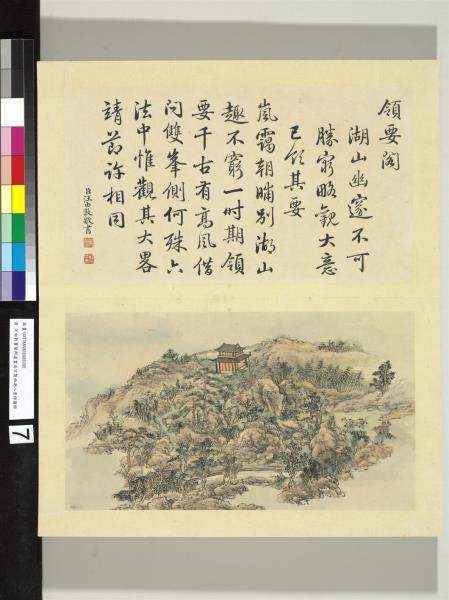 領要閣
湖山幽邃不可
勝窮略觀大意
已領其要
嵐靄朝晡別湖山
趣不窮一時期領
要千古有高風借
問雙峯側何殊六
法中惟觀其大畧
靖節許相同
臣汪由敦敬書
7